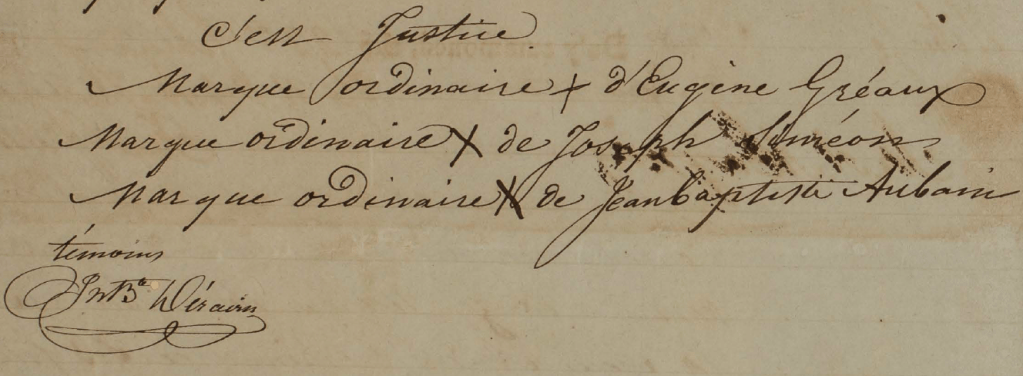 C'est Justice
Marque ordinaire + d'Eugène Gréaux
Marque ordinaire X de Joseph Siméon
Marque ordinaire X de Jean baptiste Aubain
témoins
Jn Bte Dérain